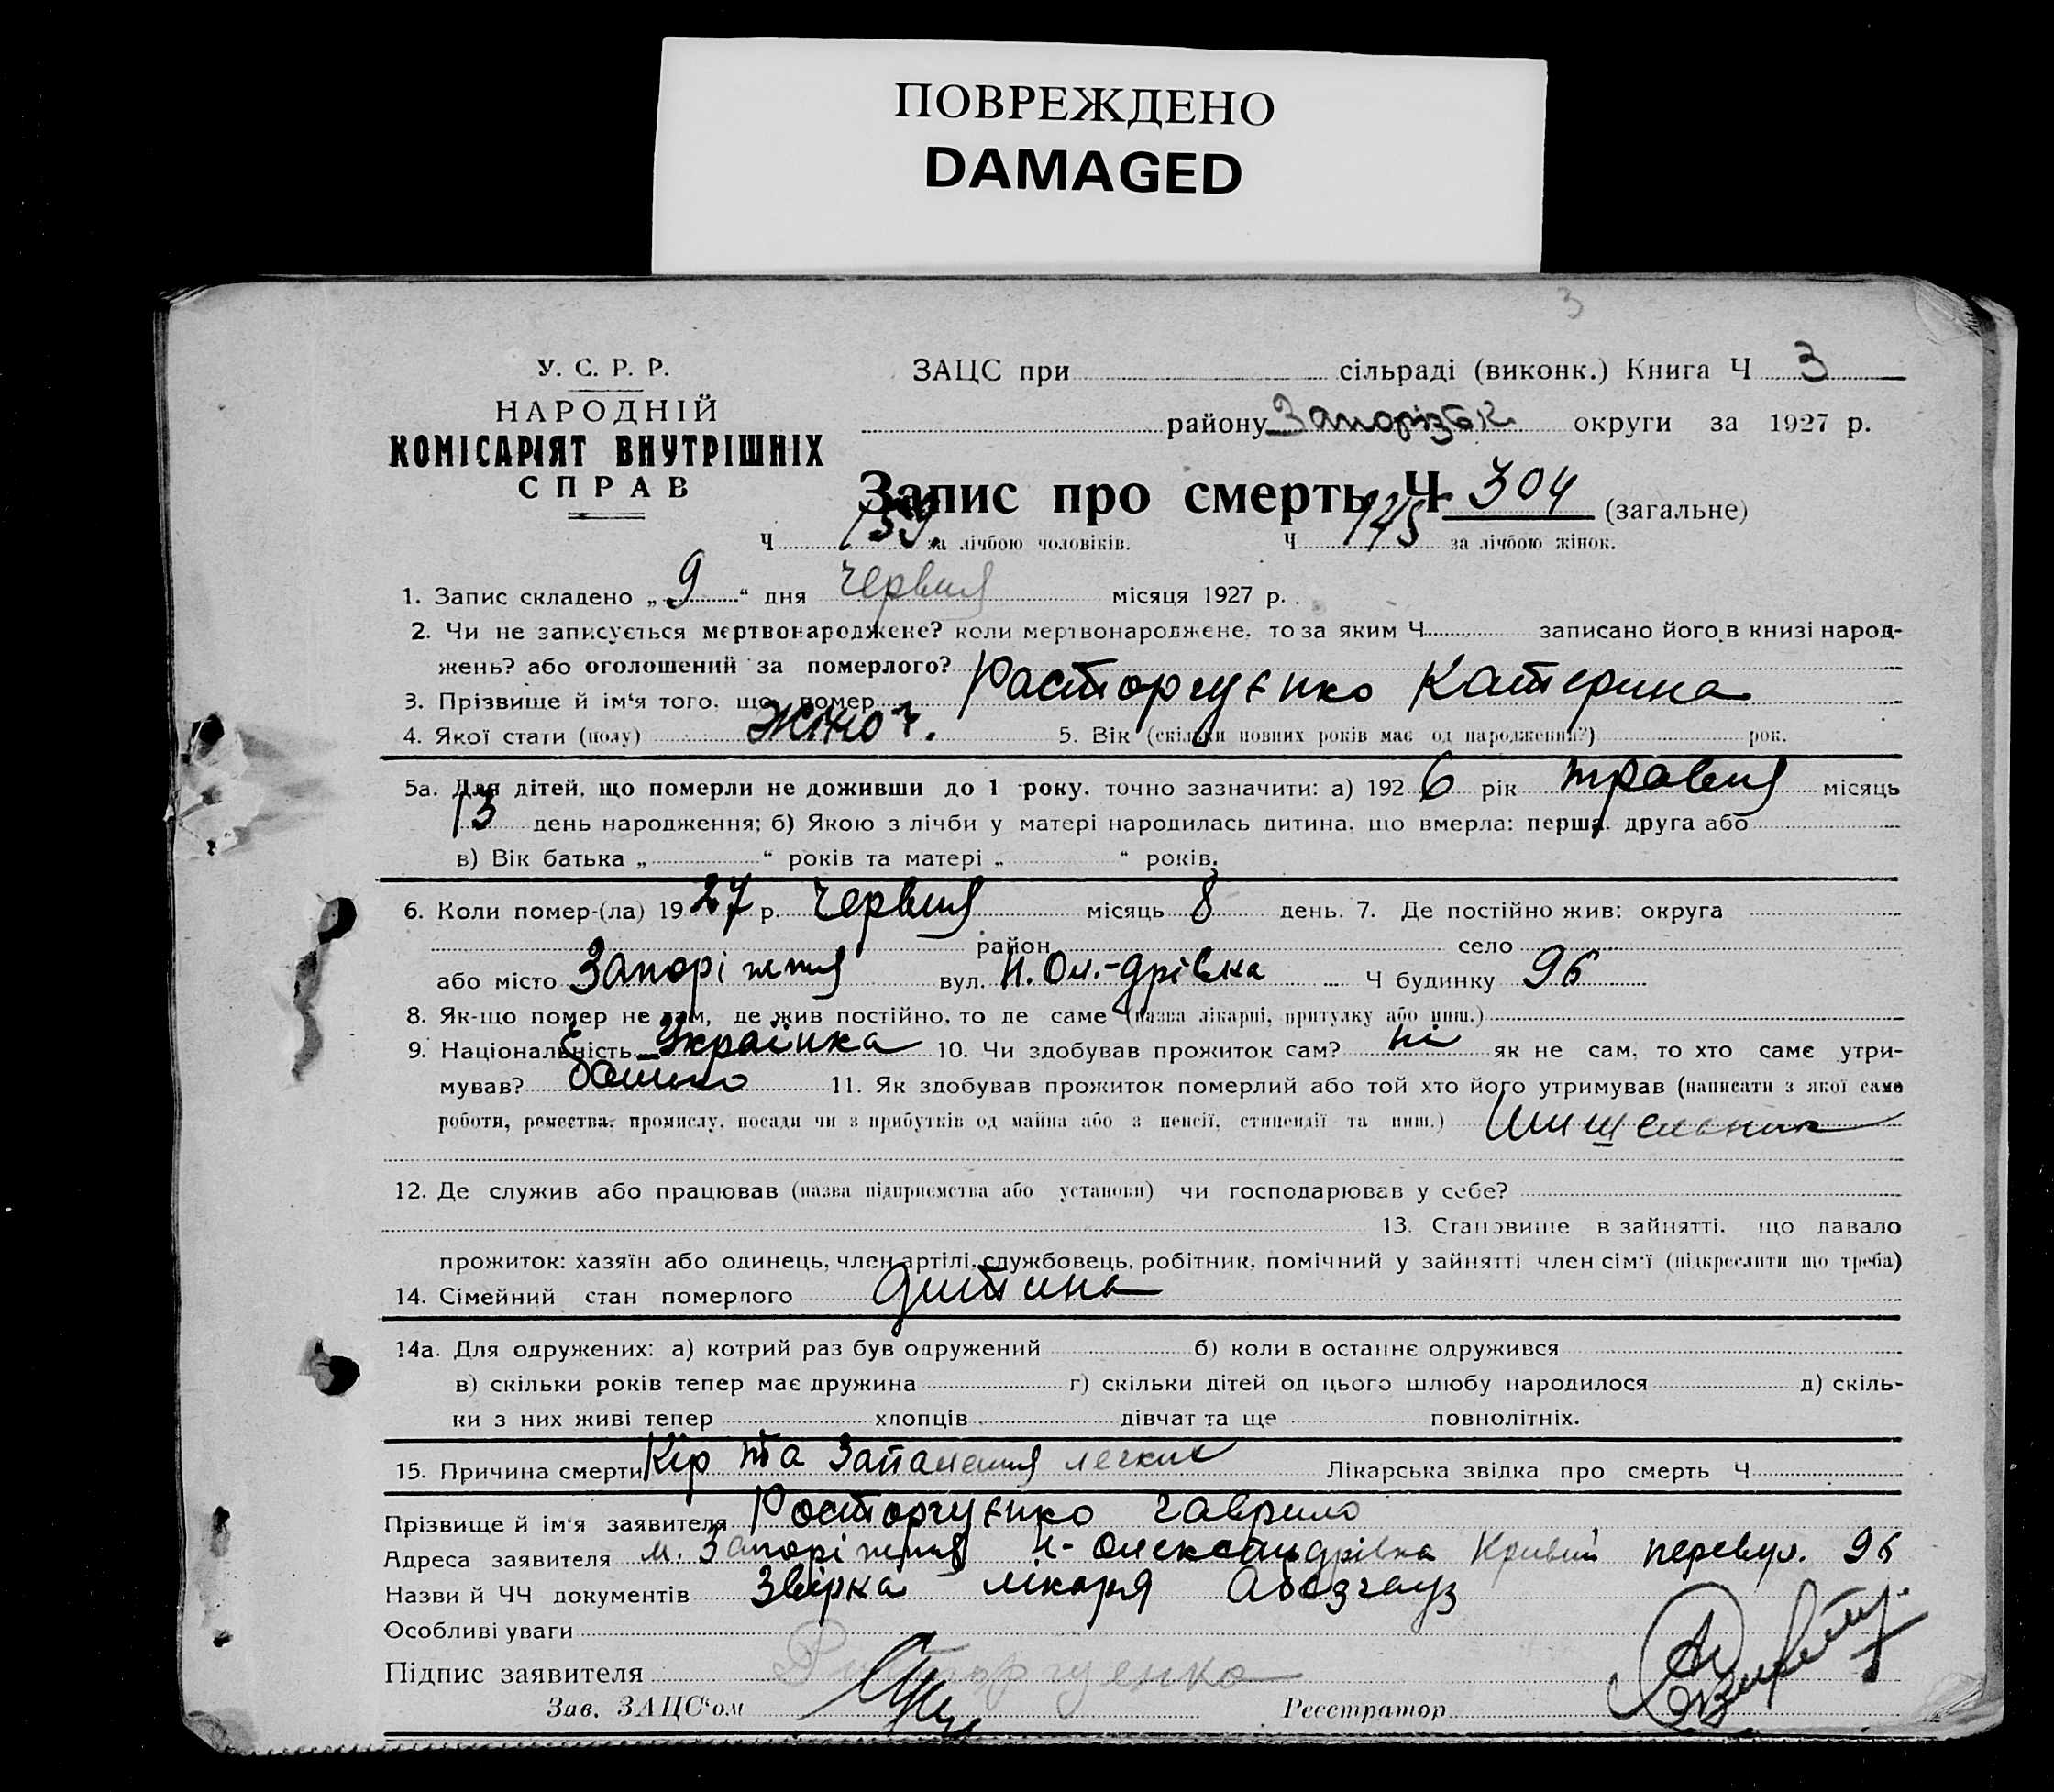 ПОВРЕЖДЕНО
DAMAGED
3
У. С. Р. Р.
НАРОДНІЙ
КОМІСАРІЯТ ВНУТРІШНІХ
СПРАВ
ЗАЦС при сільраді (виконк.) Книга Ч 3
району Запорізьк округи за 1927 р.
Запис про смерть Ч 304 (загальне)
Ч 159 за лічбою чоловіків. Ч 145 за лічбою жінок.
1. Запис складено „ 9 “ дня червня місяця 1927 р.
2. Чи не записується мертвонароджене? коли мертвонароджене, то за яким Ч записано його в книзі народ-
жень? або оголошений за померлого?
3. Прізвище й ім‘я того, що помер Расторгуєнко Катерина
4. Якої стати (полу) жіноч. 5. Вік (скільки повних років має од народження?) рок.
5а. Для дітей, що померли не доживши до 1 року, точно зазначити: а) 192 6 рік травня місяць
13 день народження; б) Якою з лічби у матері народилась дитина, що вмерла: перша, друга або
в) Вік батька „ “ років та матері „ “ років.
6. Коли помер-(ла) 19 27 р. червня місяць 8 день. 7. Де постійно жив: округа
район село
або місто Запоріжжя вул. Н. Ол.-дрівка Ч будинку 96
8. Як-що помер не там, де жив постійно, то де саме (назва лікарні, притулку або инш.)
9. Національність Українка 10. Чи здобував прожиток сам? ні як не сам, то хто саме утри-
мував? батько 11. Як здобував прожиток померлий або той хто його утримував (написати з якої саме
роботи, ремества, промислу, посади чи з прибутків од майна або з пенсії, стипендії та инш.)
12. Де служив або працював (назва підприємства або установи) чи господарював у себе?
13. Становище в зайнятті, що давало
прожиток: хазяїн або одинець, член артілі, службовець, робітник, помічний у зайнятті член сім‘ї (підкреслити що треба)
14. Сімейний стан померлого дитина
14а. Для одружених: а) котрий раз був одружений б) коли в останнє одружився
в) скільки років тепер має дружина г) скільки дітей од цього шлюбу народилося д) скіль-
ки з них живі тепер хлопців дівчат та ще повнолітніх.
15. Причина смерти Кір та Запалення легких Лікарська звідка про смерть Ч
Прізвище й ім‘я заявителя Расторгуєнко Гаврило
Адреса заявителя м. Запоріжжя Н-Олександрівка Кривий перевул. 96
Назви й ЧЧ документів лікаря
Особливі уваги
Підпис заявителя Расторгуенко
Зав. ЗАЦС‘ом Реєстратор